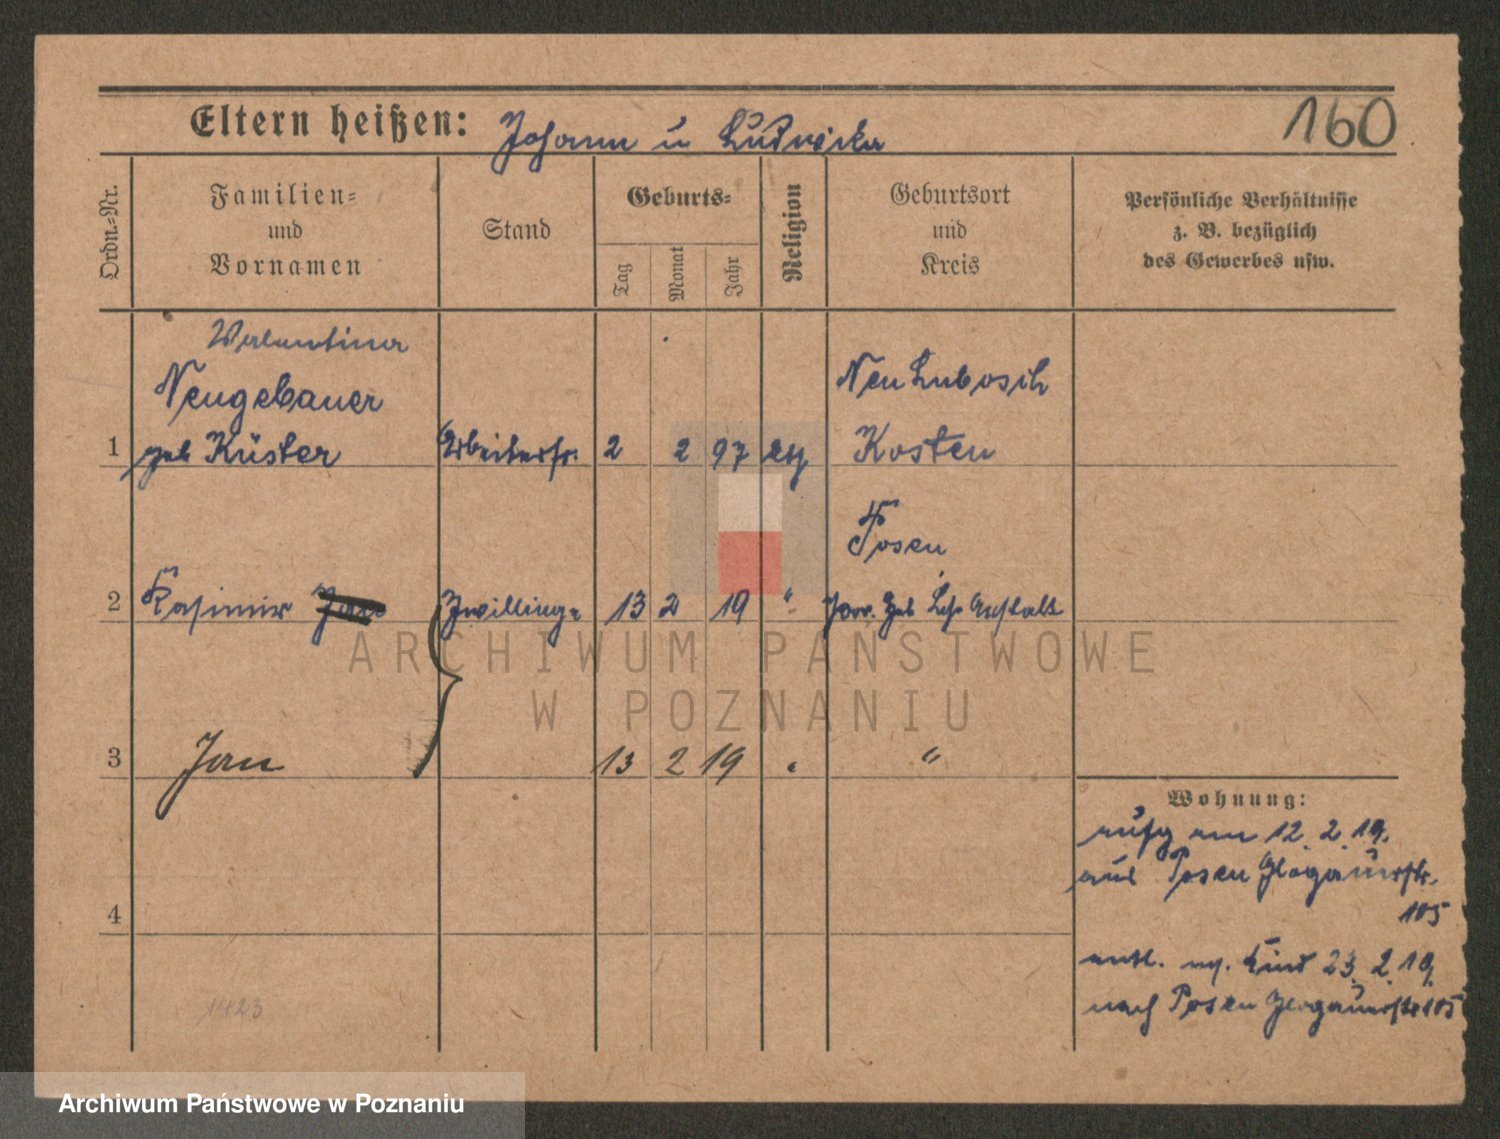 Eltern heißen: Johann u Ludwika
160
Ordn.-Nr.
Familien-
und
Vornamen
Stand
Geburts-
Tag
Monat
Jahr
Religion
Geburtsort
und
Kreis
Persönliche Verhältnisse
z. B. bezüglich
des Gewerbes usw.
Valentina
Neugebauer
1 geb Küster Arbeiterfr. 2 2 97
Neu Lubosch
Kosten
Posen
2 Kasimir Jan Zwillinge 13 2 19 " Prov. Heb Lehr Anstalt
3 Jan 13 2 19 " "
4
Wohnung:
aufg am 12. 2. 19.
aus Posen Glogauerstr.
105
entl. m. Kind 23. 2. 19.
nach Posen Glogauerstr 105
1423
ARCHIWUM PAŃSTWOWE
W POZNANIU
Archiwum Państwowe w Poznaniu